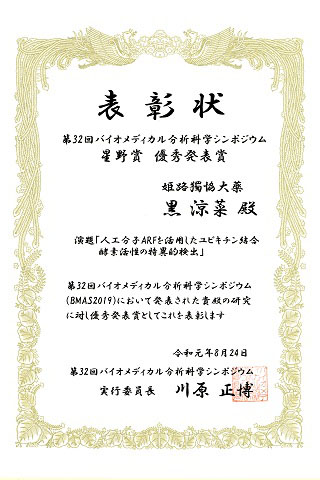 表彰状
第32回バイオメディカル分析科学シンポジウム
星野賞 優秀発表賞
姫路獨協大薬
黒 涼菜 殿
演題「人工分子ARFを活用したユビキチン結合
酵素活性の特異的検出」
第32回バイオメディカル分析科学シンポジウム
(BMAS2019)において発表された貴殿の研究
に対し優秀発表賞としてこれを表彰します
令和元年8月24日
第32回バイオメディカル分析科学シンポジウム
実行委員長 川原 正博